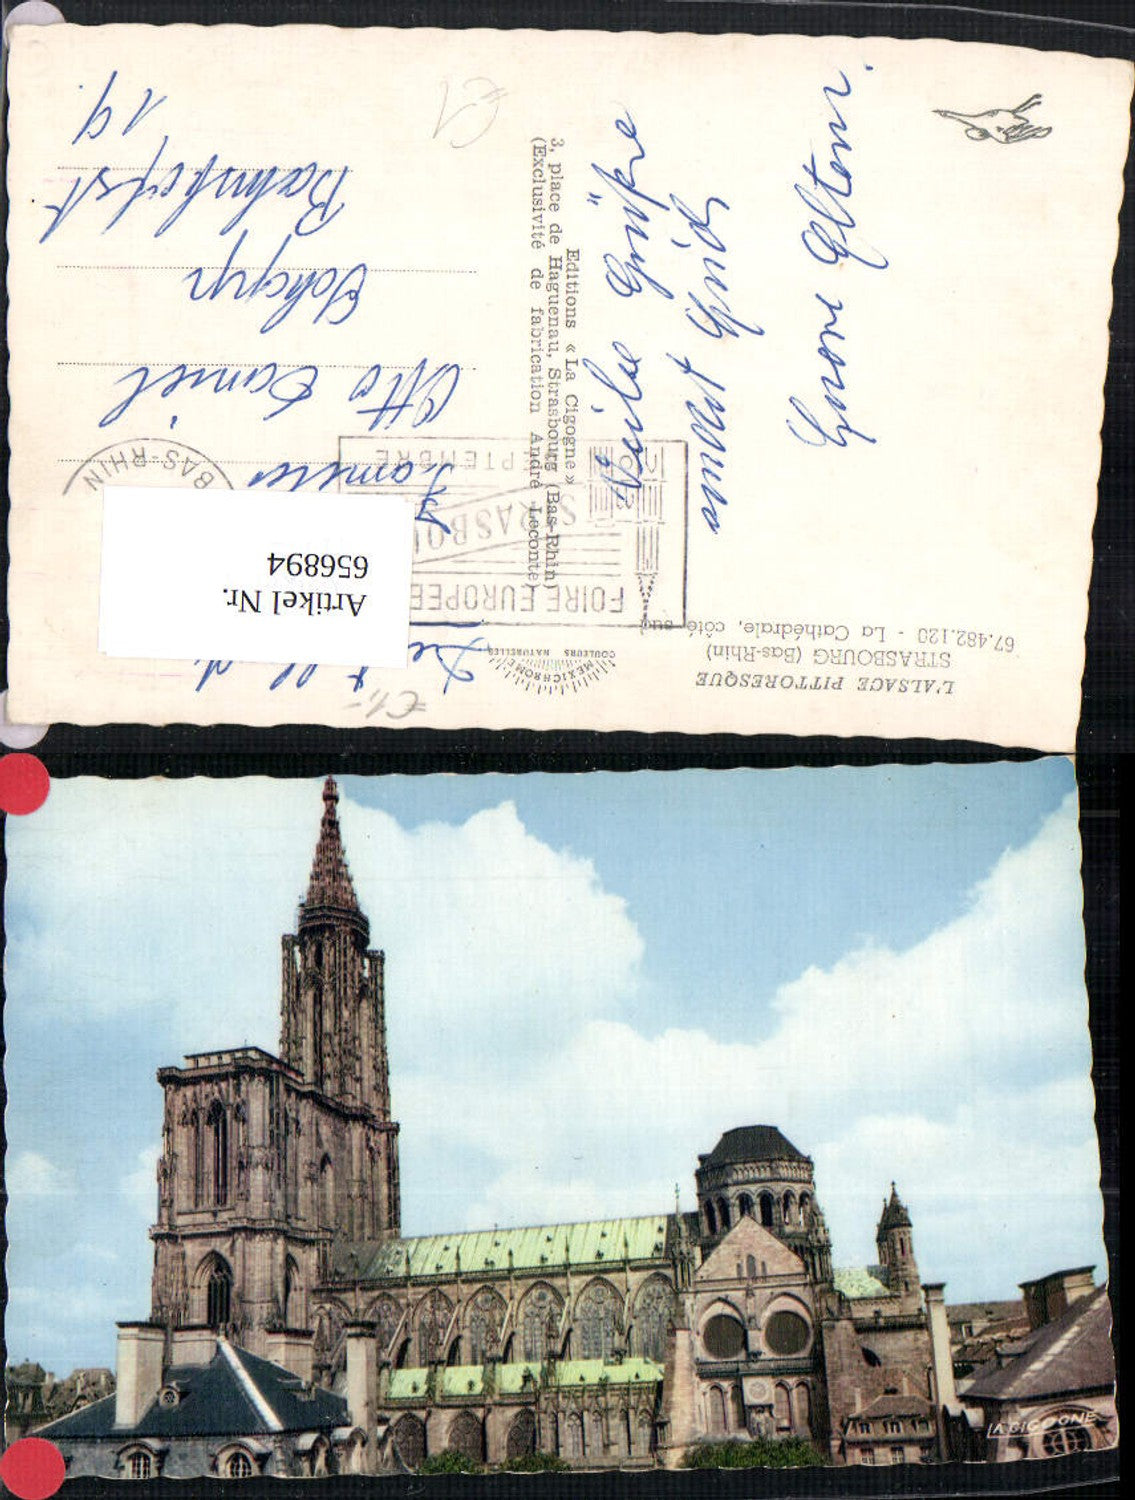 L'ALSACE PITTORESQUE
STRASBOURG (Bas-Rhin)
67.482.120 - La Cathédrale, côté sud
Editions « La Cigogne »
3, place de Haguenau, Strasbourg (Bas-Rhin)
(Exclusivité de fabrication André Leconte)
MEXICHROME
COULEURS NATURELLES
FOIRE EUROPEE
STRASBOU
PTEMBRE
BAS-RHIN
Viele Grüße
Eltern.
Familie
Otto Daniel
Bahnhofst
19.
Artikel Nr.
656894
LA CIGOGNE